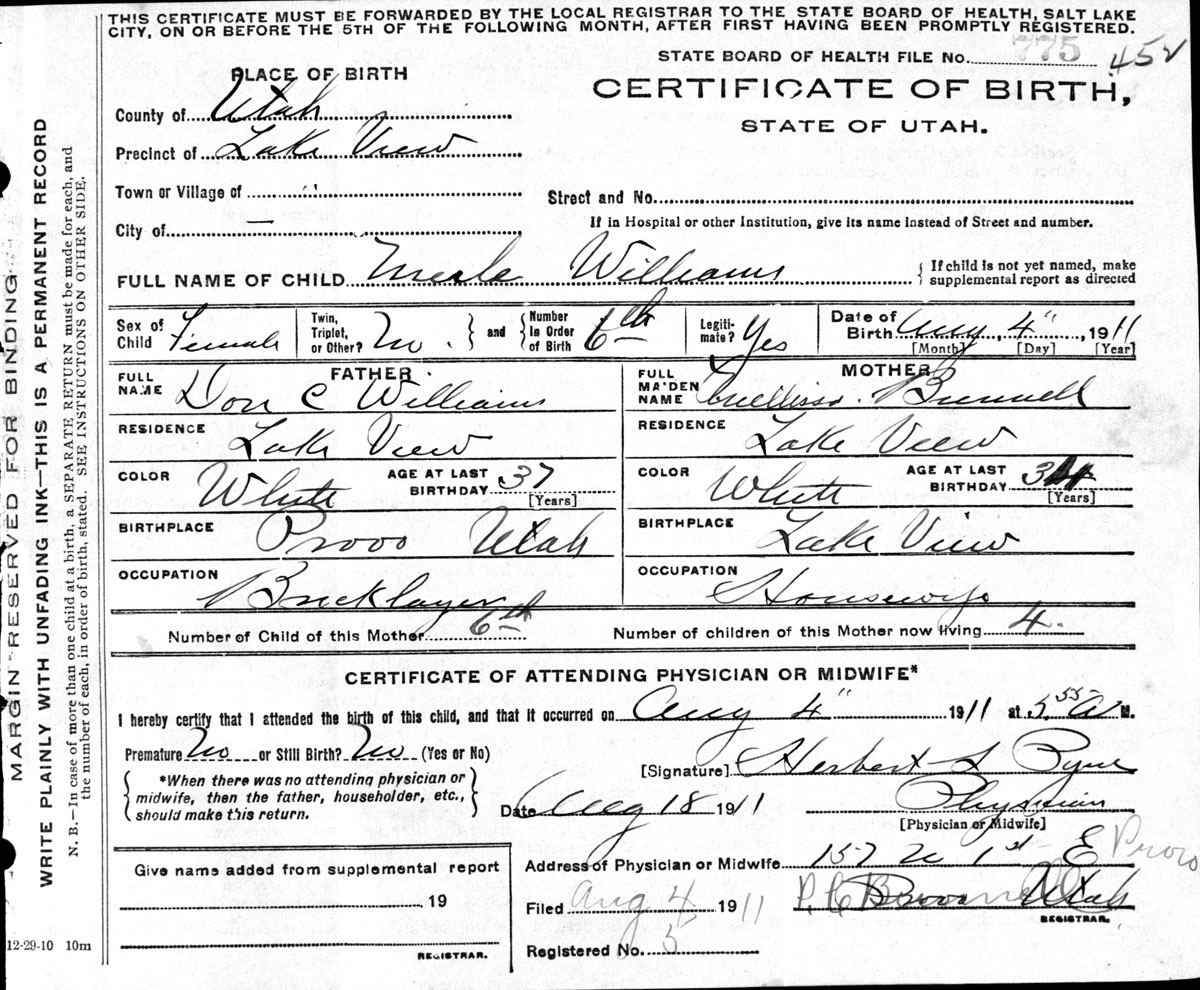 THIS CERTIFICATE MUST BE FORWARDED BY THE LOCAL REGISTRAR TO THE STATE BOARD OF HEALTH, SALT LAKE
CITY, ON OR BEFORE THE 5TH OF THE FOLLOWING MONTH, AFTER FIRST HAVING BEEN PROMPTLY REGISTERED.
STATE BOARD OF HEALTH FILE No. 775 452
PLACE OF BIRTH
CERTIFICATE OF BIRTH,
STATE OF UTAH.
County of Utah
Precinct of Lake View
Town or Village of "
Street and No.
City of —
If in Hospital or other Institution, give its name instead of Street and number.
FULL NAME OF CHILD Merle Williams
If child is not yet named, make
supplemental report as directed
Sex of Child Female
Twin, Triplet, or Other? No.
and Number in Order of Birth 6th
Legiti-mate? Yes
Date of Birth Aug. 4", 1911
[Month] [Day] [Year]
FATHER
FULL NAME Don C Williams
RESIDENCE Lake View
COLOR White AGE AT LAST BIRTHDAY 37 [Years]
BIRTHPLACE Provo Utah
OCCUPATION Bricklayer
MOTHER
FULL MAIDEN NAME Bunnell
RESIDENCE Lake View
COLOR White AGE AT LAST BIRTHDAY [Years]
BIRTHPLACE Lake View
OCCUPATION Housewife
Number of Child of this Mother 6th Number of children of this Mother now living 4.
CERTIFICATE OF ATTENDING PHYSICIAN OR MIDWIFE*
I hereby certify that I attended the birth of this child, and that it occurred on Aug 4" 1911 at 5 55 A M.
Premature No or Still Birth? No (Yes or No)
*When there was no attending physician or
midwife, then the father, householder, etc.,
should make this return.
[Signature] Herbert S Pyne
Date Aug 18 1911 Physician
[Physician or Midwife]
Address of Physician or Midwife 157 N 1st E Provo
Utah
Filed Aug 4 1911
REGISTRAR.
Registered No. 5
Give name added from supplemental report
19
REGISTRAR.
12-29-10 10m
MARGIN RESERVED FOR BINDING
WRITE PLAINLY WITH UNFADING INK—THIS IS A PERMANENT RECORD
N. B.—In case of more than one child at a birth, a SEPARATE RETURN must be made for each, and
the number of each, in order of birth, stated. (SEE INSTRUCTIONS ON OTHER SIDE.